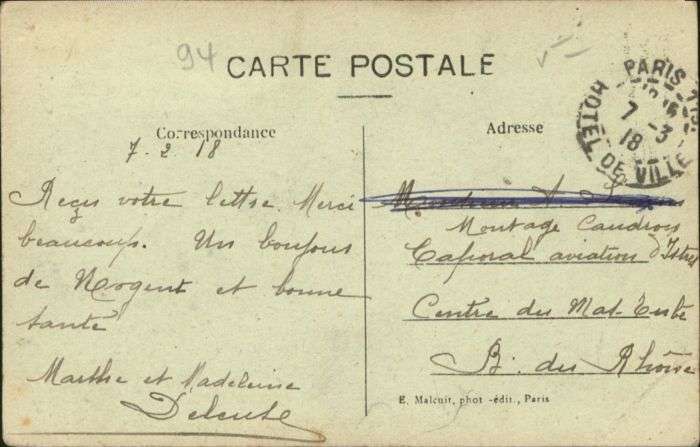 94
CARTE POSTALE
PARIS
HOTEL DE VILLE
7-3
18
Correspondance
Adresse
7.2.18
Reçu votre lettre. Merci
beaucoup. Un bonjour
de Nogent et bonne
santé
Marthe et Madeleine
Monsieur
Montage Caudron
Caporal aviation d'Istres
Centre du Mat.
B. du Rhône
E. Malcuit, phot-édit., Paris